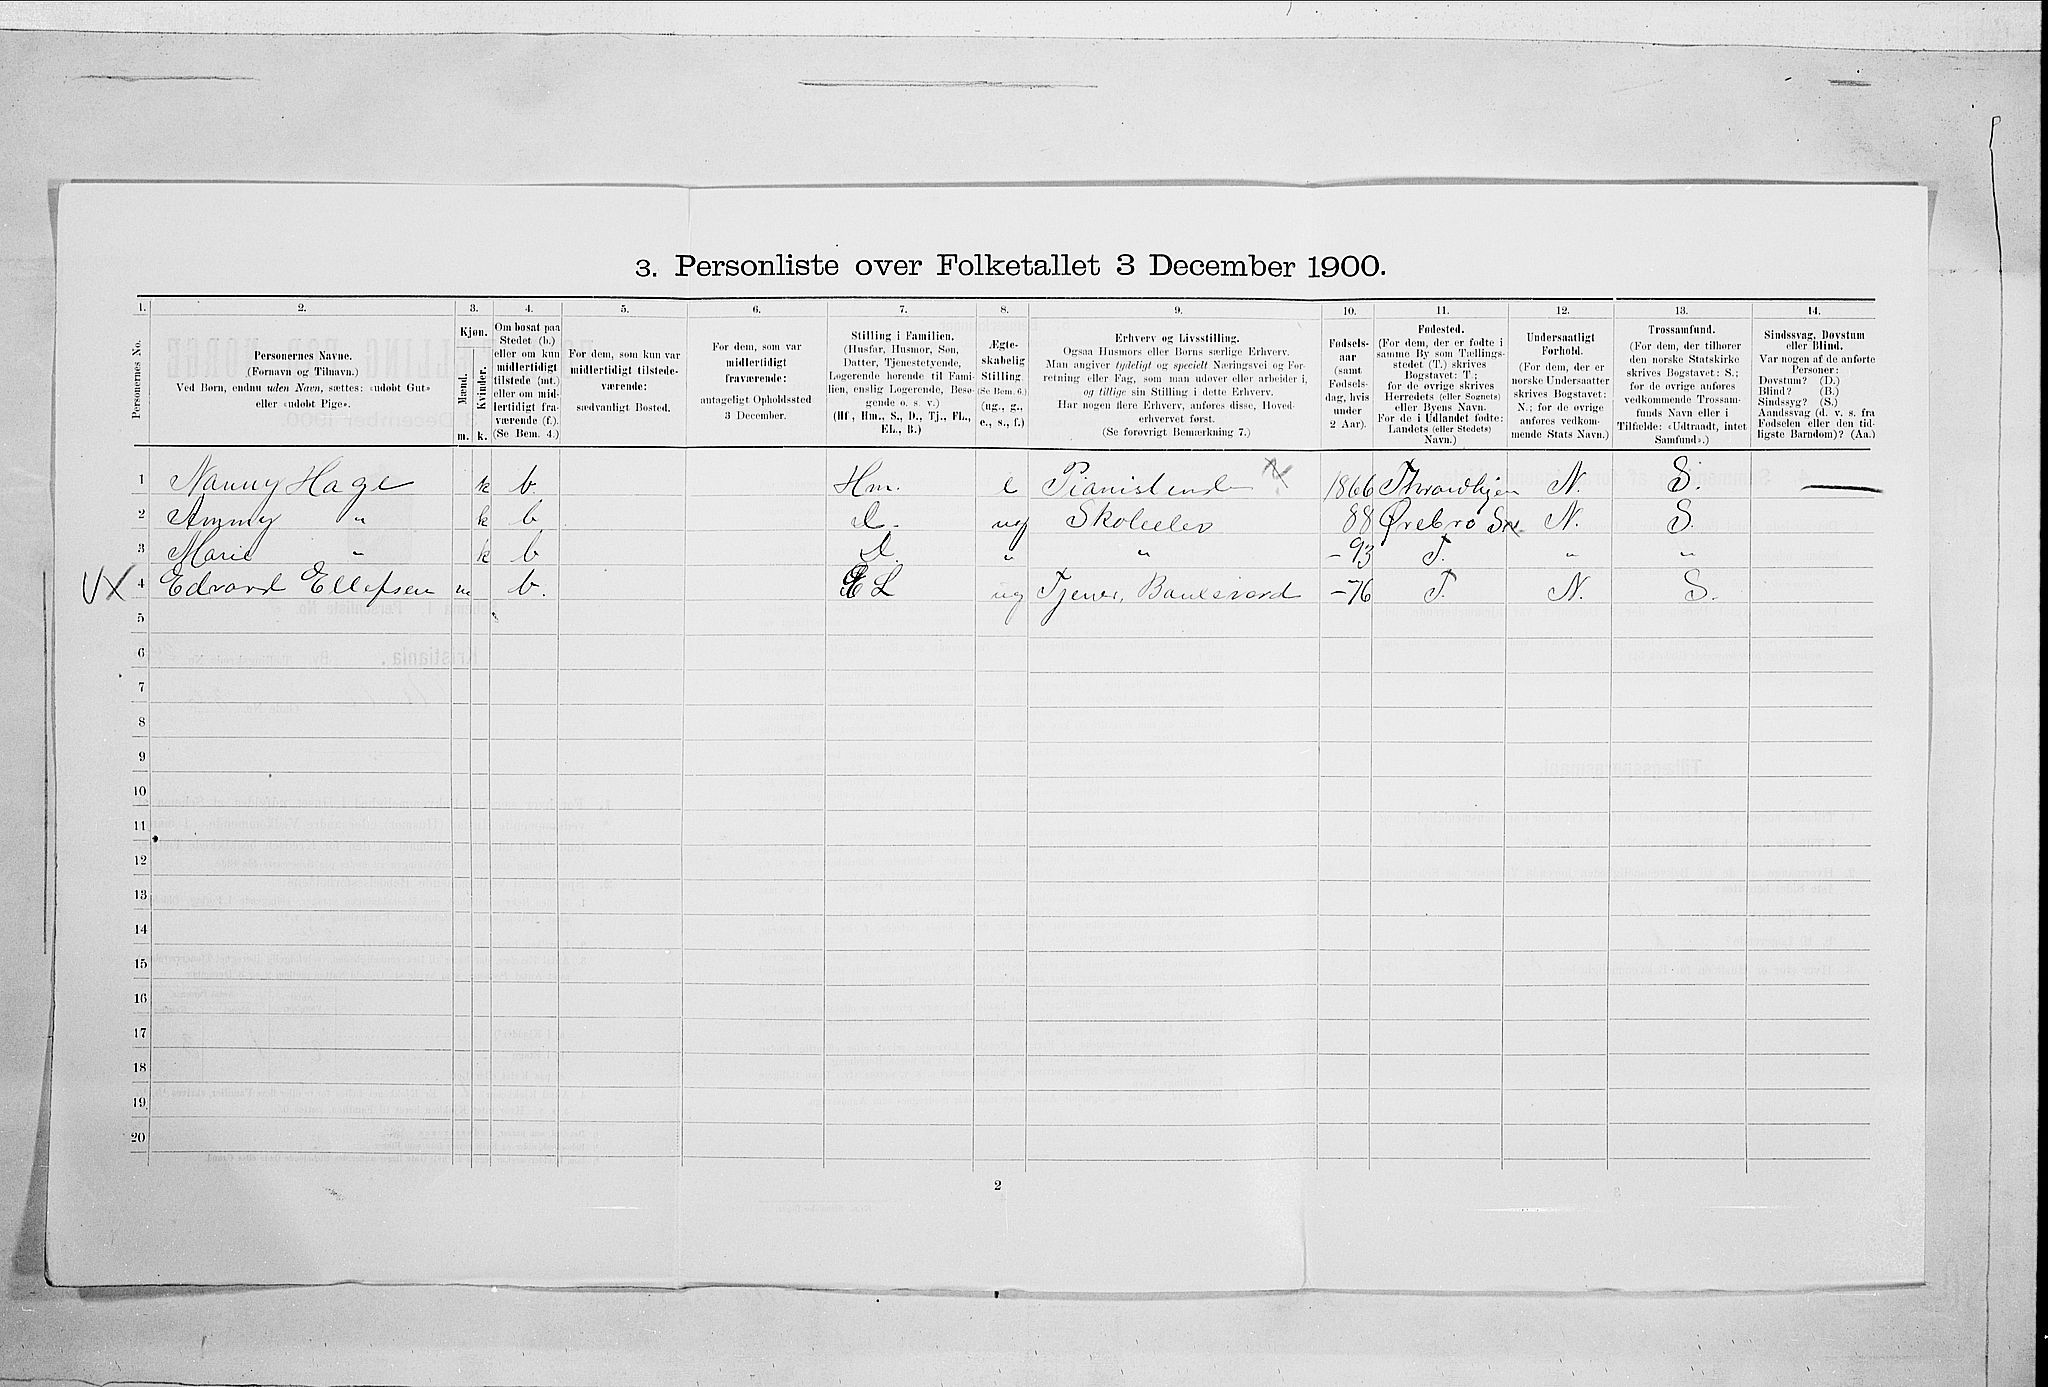 3. Personliste over Folketallet 3 December 1900.
1. 2. 3. 4. 5. 6. 7. 8. 9. 10. 11. 12. 13. 14.
Personernes No.
Personernes Navne.
(Fornavn og Tilnavn.)
Ved Børn, endnu uden Navn, sættes: «udøbt Gut»
eller «udøbt Pige».
Kjøn.
Mænd.
Kvinder.
m. k.
Om bosat paa
Stedet (b.)
eller om kun
midlertidigt
tilstede (mt.)
eller om mid-
lertidigt fra-
værende (f.).
(Se Bem. 4.)
For dem, som kun var
midlertidigt tilstede-
værende:
sædvanligt Bosted.
For dem, som var
midlertidigt
fraværende:
antageligt Opholdssted
3 December.
Stilling i Familien.
(Husfar, Husmor, Søn,
Datter, Tjenestetyende,
Logerende hørende til Fami-
lien, enslig Logerende, Besø-
gende o. s. v.)
(Hf., Hm., S., D., Tj., FL.,
EL., B.)
Ægte-
skabelig
Stilling.
(Se Bem. 6.)
(ug., g.,
e., s., f.)
Erhverv og Livsstilling.
Ogsaa Husmors eller Børns særlige Erhverv.
Man angiver tydeligt og specielt Næringsvei og For-
retning eller Fag, som man udøver eller arbeider i,
og tillige sin Stilling i dette Erhverv.
Har nogen flere Erhverv, anføres disse, Hoved-
erhvervet først.
(Se forøvrigt Bemærkning 7.)
Fødsels-
aar
(samt
Fødsels-
dag, hvis
under
2 Aar).
Fødested.
(For dem, der er fødte i
samme By som Tællings-
stedet (T.) skrives
Bogstavet: T.;
for de øvrige skrives
Herredets (eller Sognets)
eller Byens Navn.
For de i Udlandet fødte:
Landets (eller Stedets)
Navn.)
Undersaatligt
Forhold.
(For dem, der er
norske Undersaatter
skrives Bogstavet:
N.; for de øvrige
anføres vedkom-
mende Stats Navn.)
Trossamfund.
(For dem, der tilhører
den norske Statskirke
skrives Bogstavet: S.;
for de øvrige anføres
vedkommende Trossam-
funds Navn eller i
Tilfælde: «Udtraadt, intet
Samfund».)
Sindssvag, Døvstum
eller Blind.
Var nogen af de anførte
Personer:
Døvstum? (D.)
Blind? (B.)
Sindssyg? (S.)
Aandssvag (d. v. s. fra
Fødselen eller den tid-
ligste Barndom)? (Aa.)
1 Nanny Hage k b. Hm. e Pianistend 1866 Throndhjem N. S. —
2 Ammy " k b D. ug Skoleelev 88 Ørebro N. S.
3 Marie " k b D " " -93 T. " "
4 Edvard Ellefsen m b. EL ug Tjener, Boulevard -76 T. N. S.
5
6
7
8
9
10
11
12
13
14
15
16
17
18
19
20
2